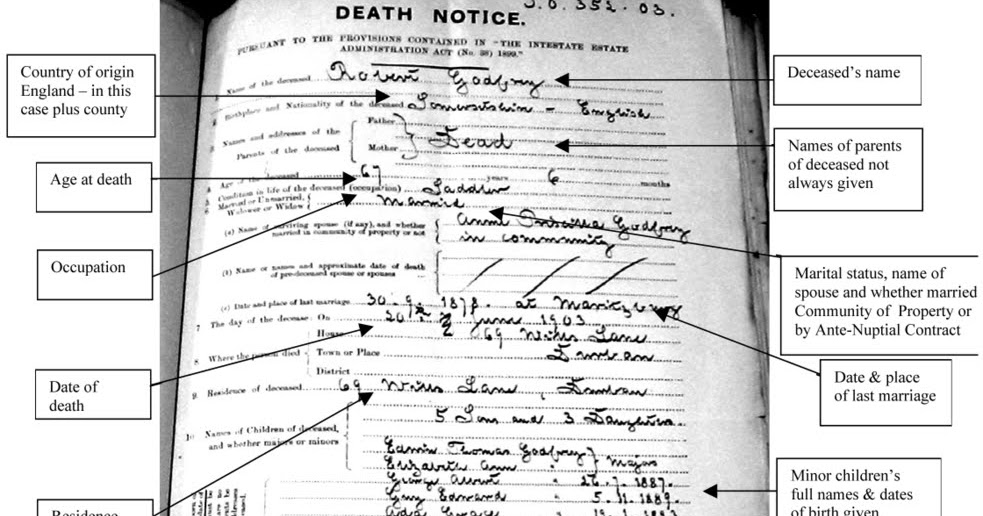 S.O. 352. 03.
DEATH NOTICE.
PURSUANT TO THE PROVISIONS CONTAINED IN "THE INTESTATE ESTATE
ADMINISTRATION ACT (No. 38) 1899."
Country of origin
England – in this
case plus county
Deceased's name
1 Name of the deceased Robert Godfrey
2 Birthplace and Nationality of the deceased Somersetshire – English
3 Names and addresses of the
Parents of the deceased
Father
Mother
Dead
Names of parents
of deceased not
always given
Age at death
4 Age of the deceased 67 years 6 months
5 Condition in life of the deceased (occupation) Saddler
6 Married or Unmarried,
Widower or Widow
Married
Occupation
(a) Name of surviving spouse (if any), and whether
married in community of property or not
Anne Priscilla Godfrey
in community
Marital status, name of
spouse and whether married
Community of Property or
by Ante-Nuptial Contract
(b) Name or names and approximate date of death
of pre-deceased spouse or spouses
(c) Date and place of last marriage 30. 9. 1878. at Maritzburg
7 The day of the decease: On 20 June 1903
8 Where the person died
House 69 Lane
Town or Place Durban
District
Date & place
of last marriage
Date of
death
9. Residence of deceased 69 Lane, Durban
10 Names of Children of deceased,
and whether majors or minors
5 Sons and 3 Daughters.
Edwin Thomas Godfrey
Elizabeth Ann "
Majors
George " 26. 7. 1887.
Guy Edward " 5. 11. 1889.
Residence
Minor children's
full names & dates
of birth given